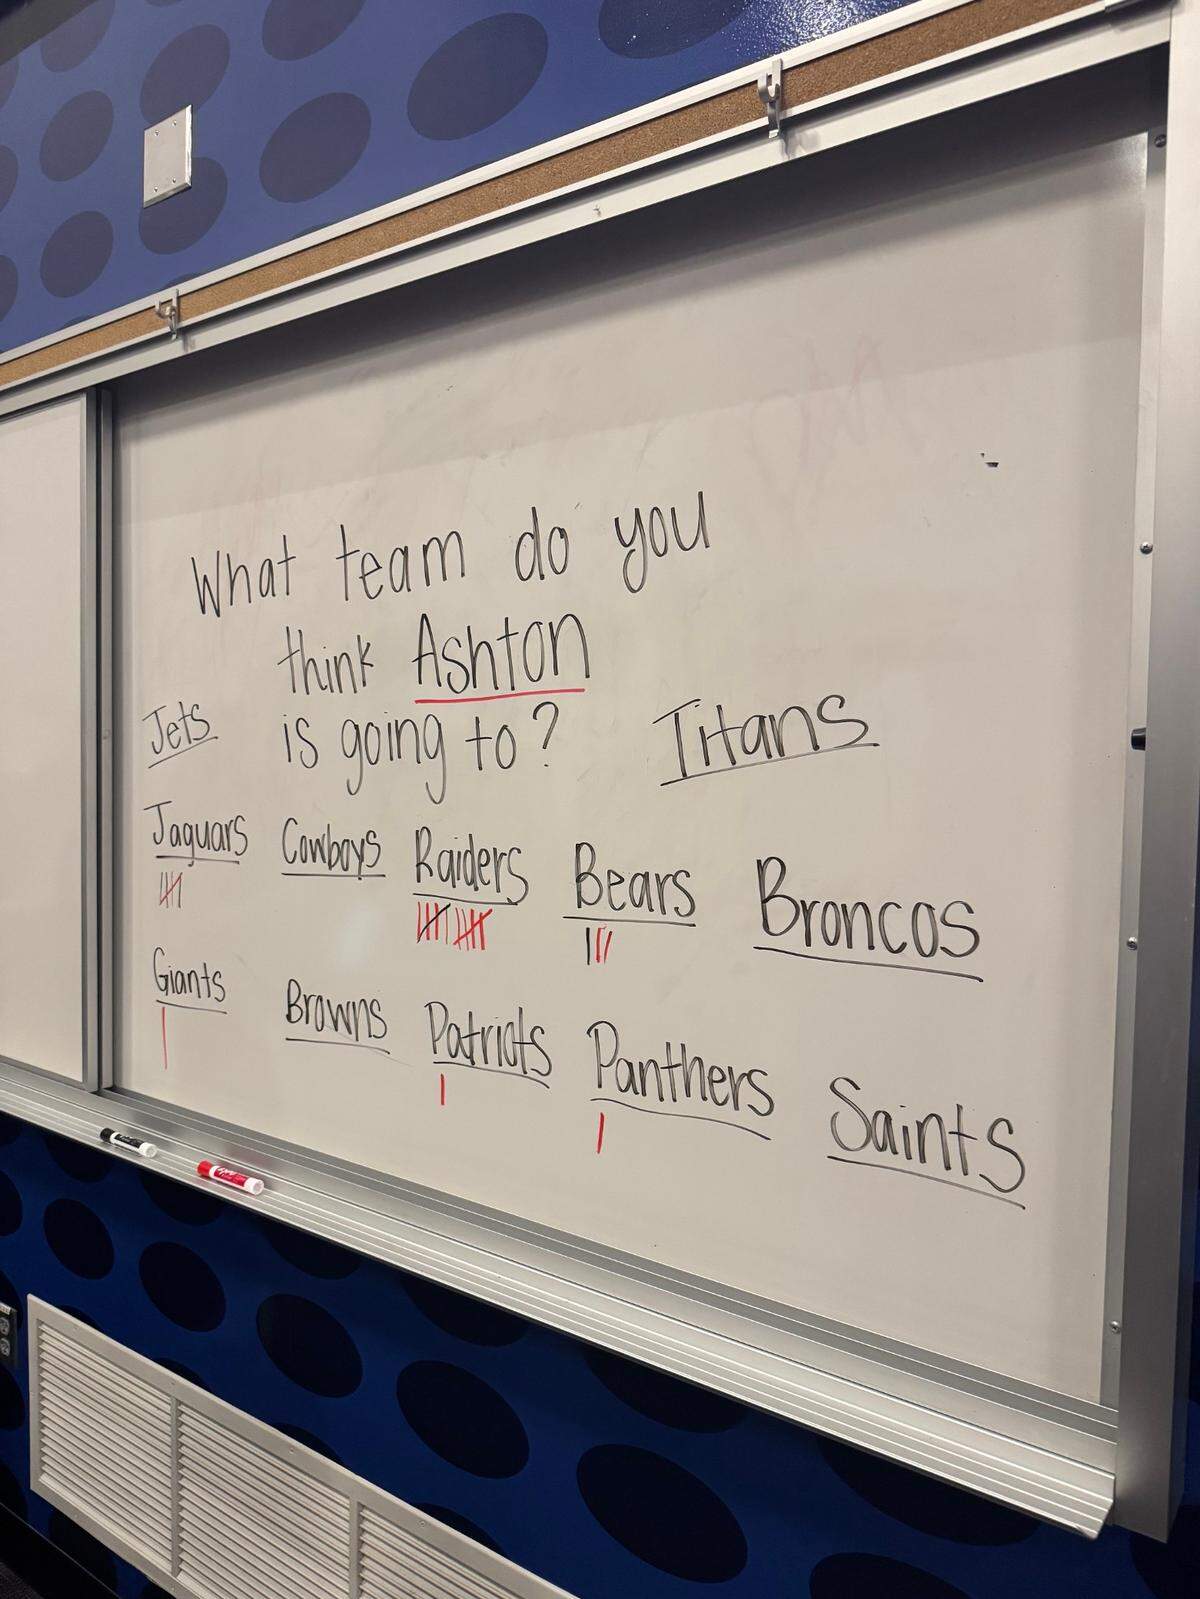 What team do you
think Ashton
is going to?
Jets
Titans
Jaguars Cowboys Raiders Bears Broncos
Giants Browns Patriots Panthers Saints